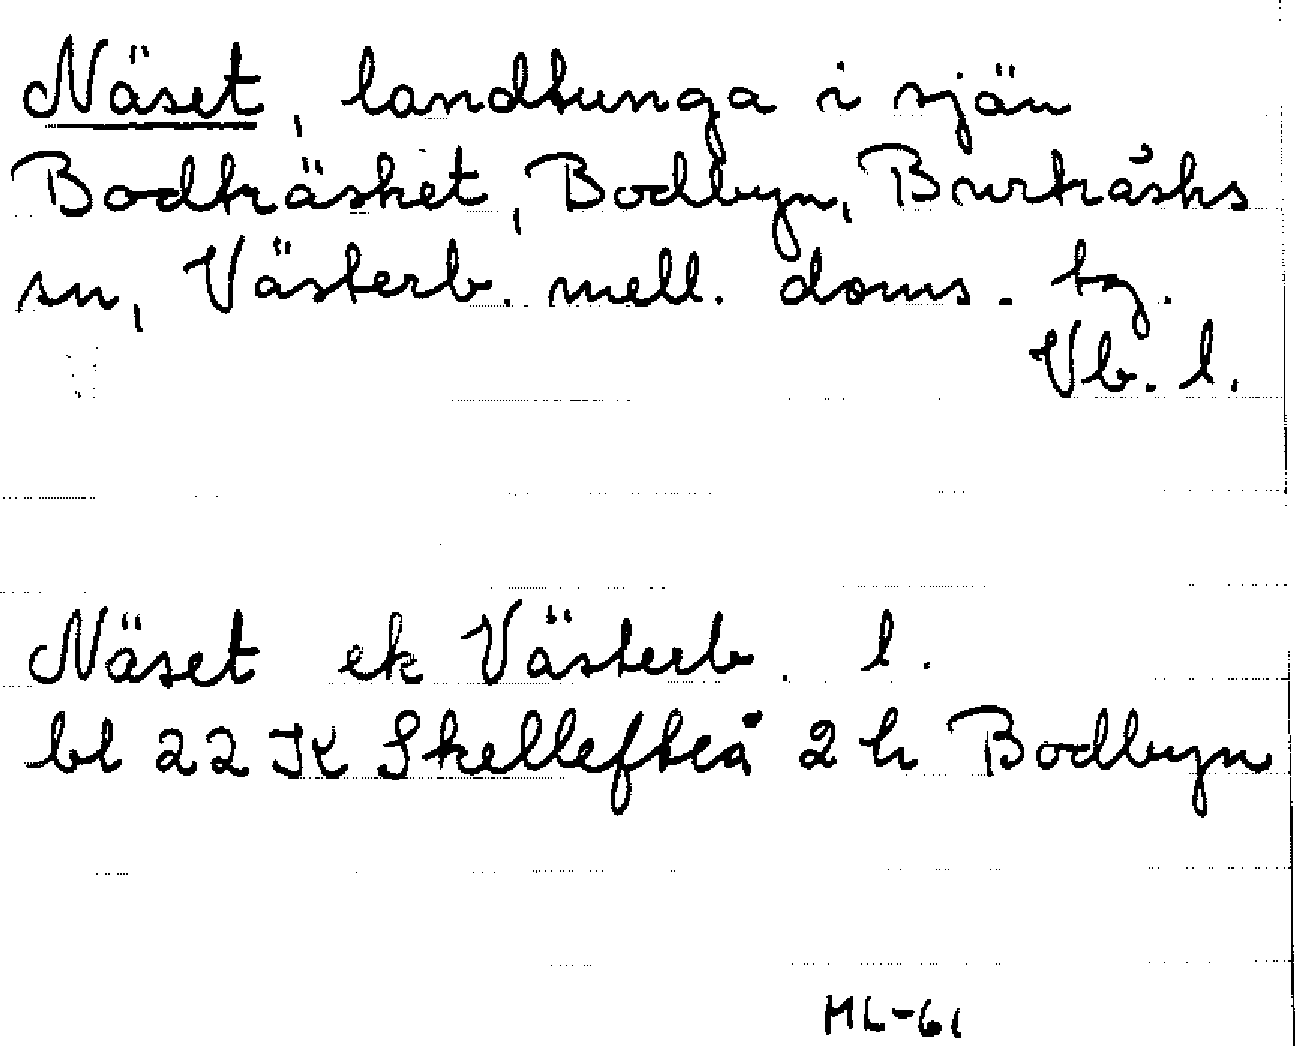 Näset, landtunga i sjön
Bodträsket, Bodbyn, Burträsks
sn, Västerb. mell. doms. tg.
Vb. l.
Näset ek Västerb. l.
bl 22 K Skellefteå 2 h Bodbyn
ML-61